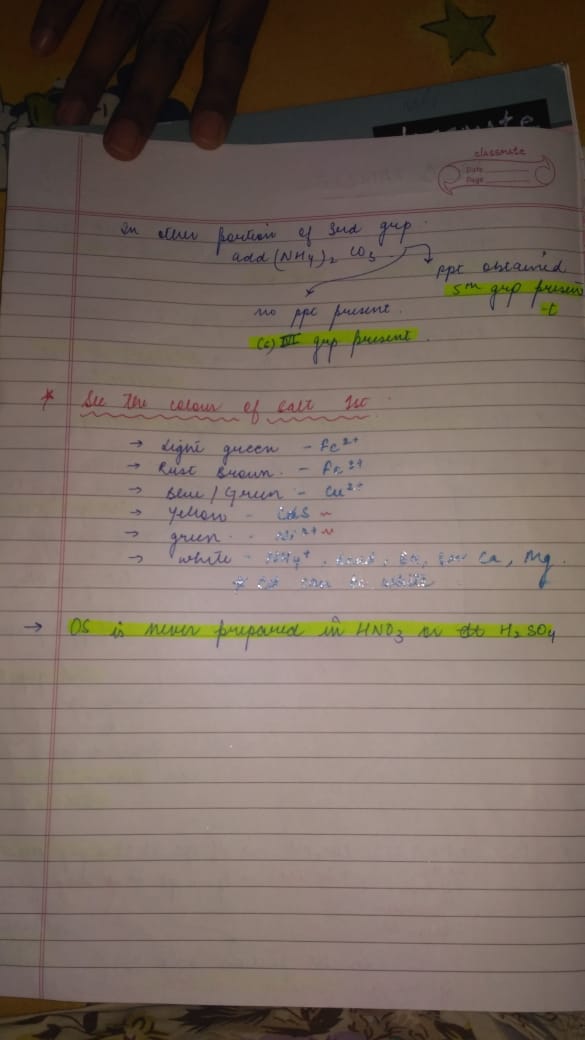 classmate
classmate
Date
Page
In other portion of 3rd grp.
add (NH4)2 CO3
ppt obtained
5th grp presen
-t
no ppt present.
(6) VI grp present.
* See the colour of salt Ist
→ Light green - Fe2+
→ Rust Brown. -
→ Blue / Green - Cu2+
→ Yellow - CdS
→ green - Ni2+
→ white - NH4+, Ca, Mg.
→ OS is never prepared in HNO3 or H2SO4